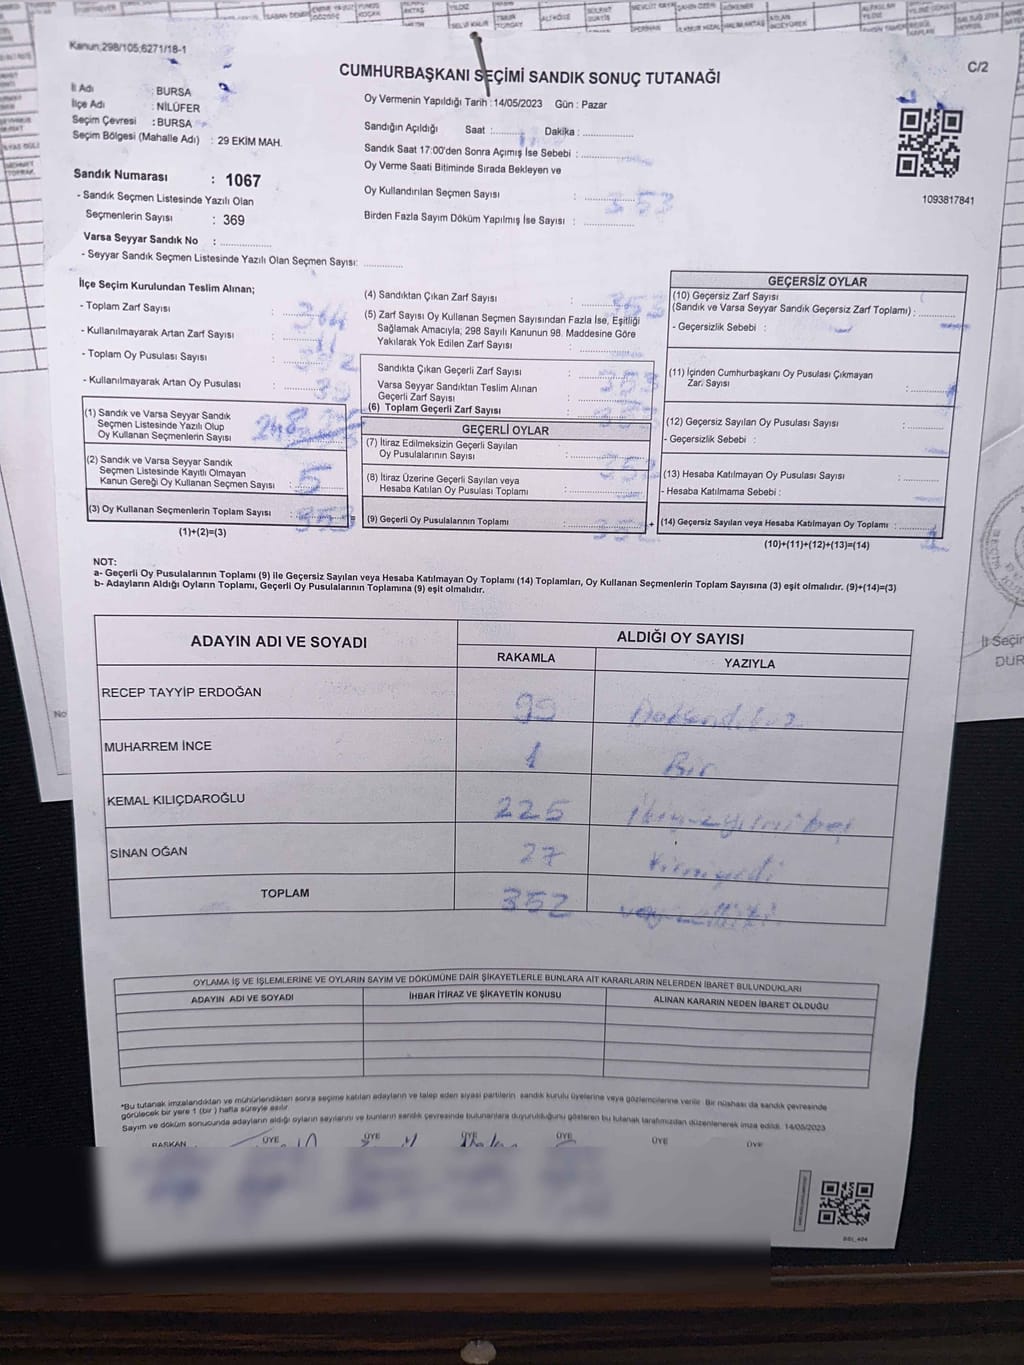 Kanun;298/105;6271/18-1
C/2
CUMHURBAŞKANI SEÇİMİ SANDIK SONUÇ TUTANAĞI
İl Adı : BURSA
İlçe Adı : NİLÜFER
Seçim Çevresi : BURSA
Seçim Bölgesi (Mahalle Adı) : 29 EKİM MAH.
Sandık Numarası : 1067
- Sandık Seçmen Listesinde Yazılı Olan
Seçmenlerin Sayısı : 369
Varsa Seyyar Sandık No :
- Seyyar Sandık Seçmen Listesinde Yazılı Olan Seçmen Sayısı:
Oy Vermenin Yapıldığı Tarih : 14/05/2023 Gün : Pazar
Sandığın Açıldığı Saat : Dakika :
Sandık Saat 17:00'den Sonra Açımış İse Sebebi :
Oy Verme Saati Bitiminde Sırada Bekleyen ve
Oy Kullandırılan Seçmen Sayısı : 353
Birden Fazla Sayım Döküm Yapılmış İse Sayısı :
1093817841
İlçe Seçim Kurulundan Teslim Alınan;
- Toplam Zarf Sayısı : 364
- Kullanılmayarak Artan Zarf Sayısı : 11
- Toplam Oy Pusulası Sayısı :
- Kullanılmayarak Artan Oy Pusulası : 39
(1) Sandık ve Varsa Seyyar Sandık
Seçmen Listesinde Yazılı Olup
Oy Kullanan Seçmenlerin Sayısı
(2) Sandık ve Varsa Seyyar Sandık
Seçmen Listesinde Kayıtlı Olmayan
Kanun Gereği Oy Kullanan Seçmen Sayısı : 5
(3) Oy Kullanan Seçmenlerin Toplam Sayısı : 353
(1)+(2)=(3)
(4) Sandıktan Çıkan Zarf Sayısı : 353
(5) Zarf Sayısı Oy Kullanan Seçmen Sayısından Fazla İse, Eşitliği
Sağlamak Amacıyla; 298 Sayılı Kanunun 98. Maddesine Göre
Yakılarak Yok Edilen Zarf Sayısı :
Sandıkta Çıkan Geçerli Zarf Sayısı : 353
Varsa Seyyar Sandıktan Teslim Alınan
Geçerli Zarf Sayısı :
(6) Toplam Geçerli Zarf Sayısı : 353
GEÇERLİ OYLAR
(7) İtiraz Edilmeksizin Geçerli Sayılan
Oy Pusulalarının Sayısı : 352
(8) İtiraz Üzerine Geçerli Sayılan veya
Hesaba Katılan Oy Pusulası Toplamı :
(9) Geçerli Oy Pusulalarının Toplamı : 352
GEÇERSİZ OYLAR
(10) Geçersiz Zarf Sayısı
(Sandık ve Varsa Seyyar Sandık Geçersiz Zarf Toplamı) :
- Geçersizlik Sebebi :
(11) İçinden Cumhurbaşkanı Oy Pusulası Çıkmayan
Zarf Sayısı : 1
(12) Geçersiz Sayılan Oy Pusulası Sayısı :
- Geçersizlik Sebebi :
(13) Hesaba Katılmayan Oy Pusulası Sayısı :
- Hesaba Katılmama Sebebi :
+ (14) Geçersiz Sayılan veya Hesaba Katılmayan Oy Toplamı : 1
(10)+(11)+(12)+(13)=(14)
NOT:
a- Geçerli Oy Pusulalarının Toplamı (9) ile Geçersiz Sayılan veya Hesaba Katılmayan Oy Toplamı (14) Toplamları, Oy Kullanan Seçmenlerin Toplam Sayısına (3) eşit olmalıdır. (9)+(14)=(3)
b- Adayların Aldığı Oyların Toplamı, Geçerli Oy Pusulalarının Toplamına (9) eşit olmalıdır.
ADAYIN ADI VE SOYADI ALDIĞI OY SAYISI
RAKAMLA YAZIYLA
RECEP TAYYİP ERDOĞAN 99 Doksandokuz
MUHARREM İNCE 1 Bir
KEMAL KILIÇDAROĞLU 225 İkiyüzyirmibeş
SİNAN OĞAN 27 Yirmiyedi
TOPLAM 352
OYLAMA İŞ VE İŞLEMLERİNE VE OYLARIN SAYIM VE DÖKÜMÜNE DAİR ŞİKAYETLERLE BUNLARA AİT KARARLARIN NELERDEN İBARET BULUNDUKLARI
ADAYIN ADI VE SOYADI İHBAR İTİRAZ VE ŞİKAYETİN KONUSU ALINAN KARARIN NEDEN İBARET OLDUĞU
*Bu tutanak imzalandıktan ve mühürlendikten sonra seçime katılan adayların ve talep eden siyasi partilerin sandık kurulu üyelerine veya gözlemcilerine verilir. Bir nüshası da sandık çevresinde
görülecek bir yere 1 (bir) hafta süreyle asılır.
Sayım ve döküm sonucunda adayların aldığı oyların sayılarını ve bunların sandık çevresinde bulunanlara duyurulduğunu gösteren bu tutanak tarafımızdan düzenlenerek imza edildi. 14/05/2023
BAŞKAN ÜYE ÜYE ÜYE ÜYE ÜYE ÜYE